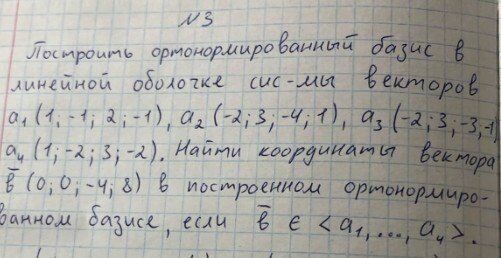 N3
Построить ортонормированный базис в
линейной оболочке сис-мы векторов
a₁(1;-1;2;-1), a₂(-2;3;-4;1), a₃(-2;3;-3;-1)
a₄(1;-2;3;-2). Найти координаты вектора
b̄(0;0;-4;8) в построенном ортонормиро-
ванном базисе, если b̄ ∈ <a₁,...,a₄>.